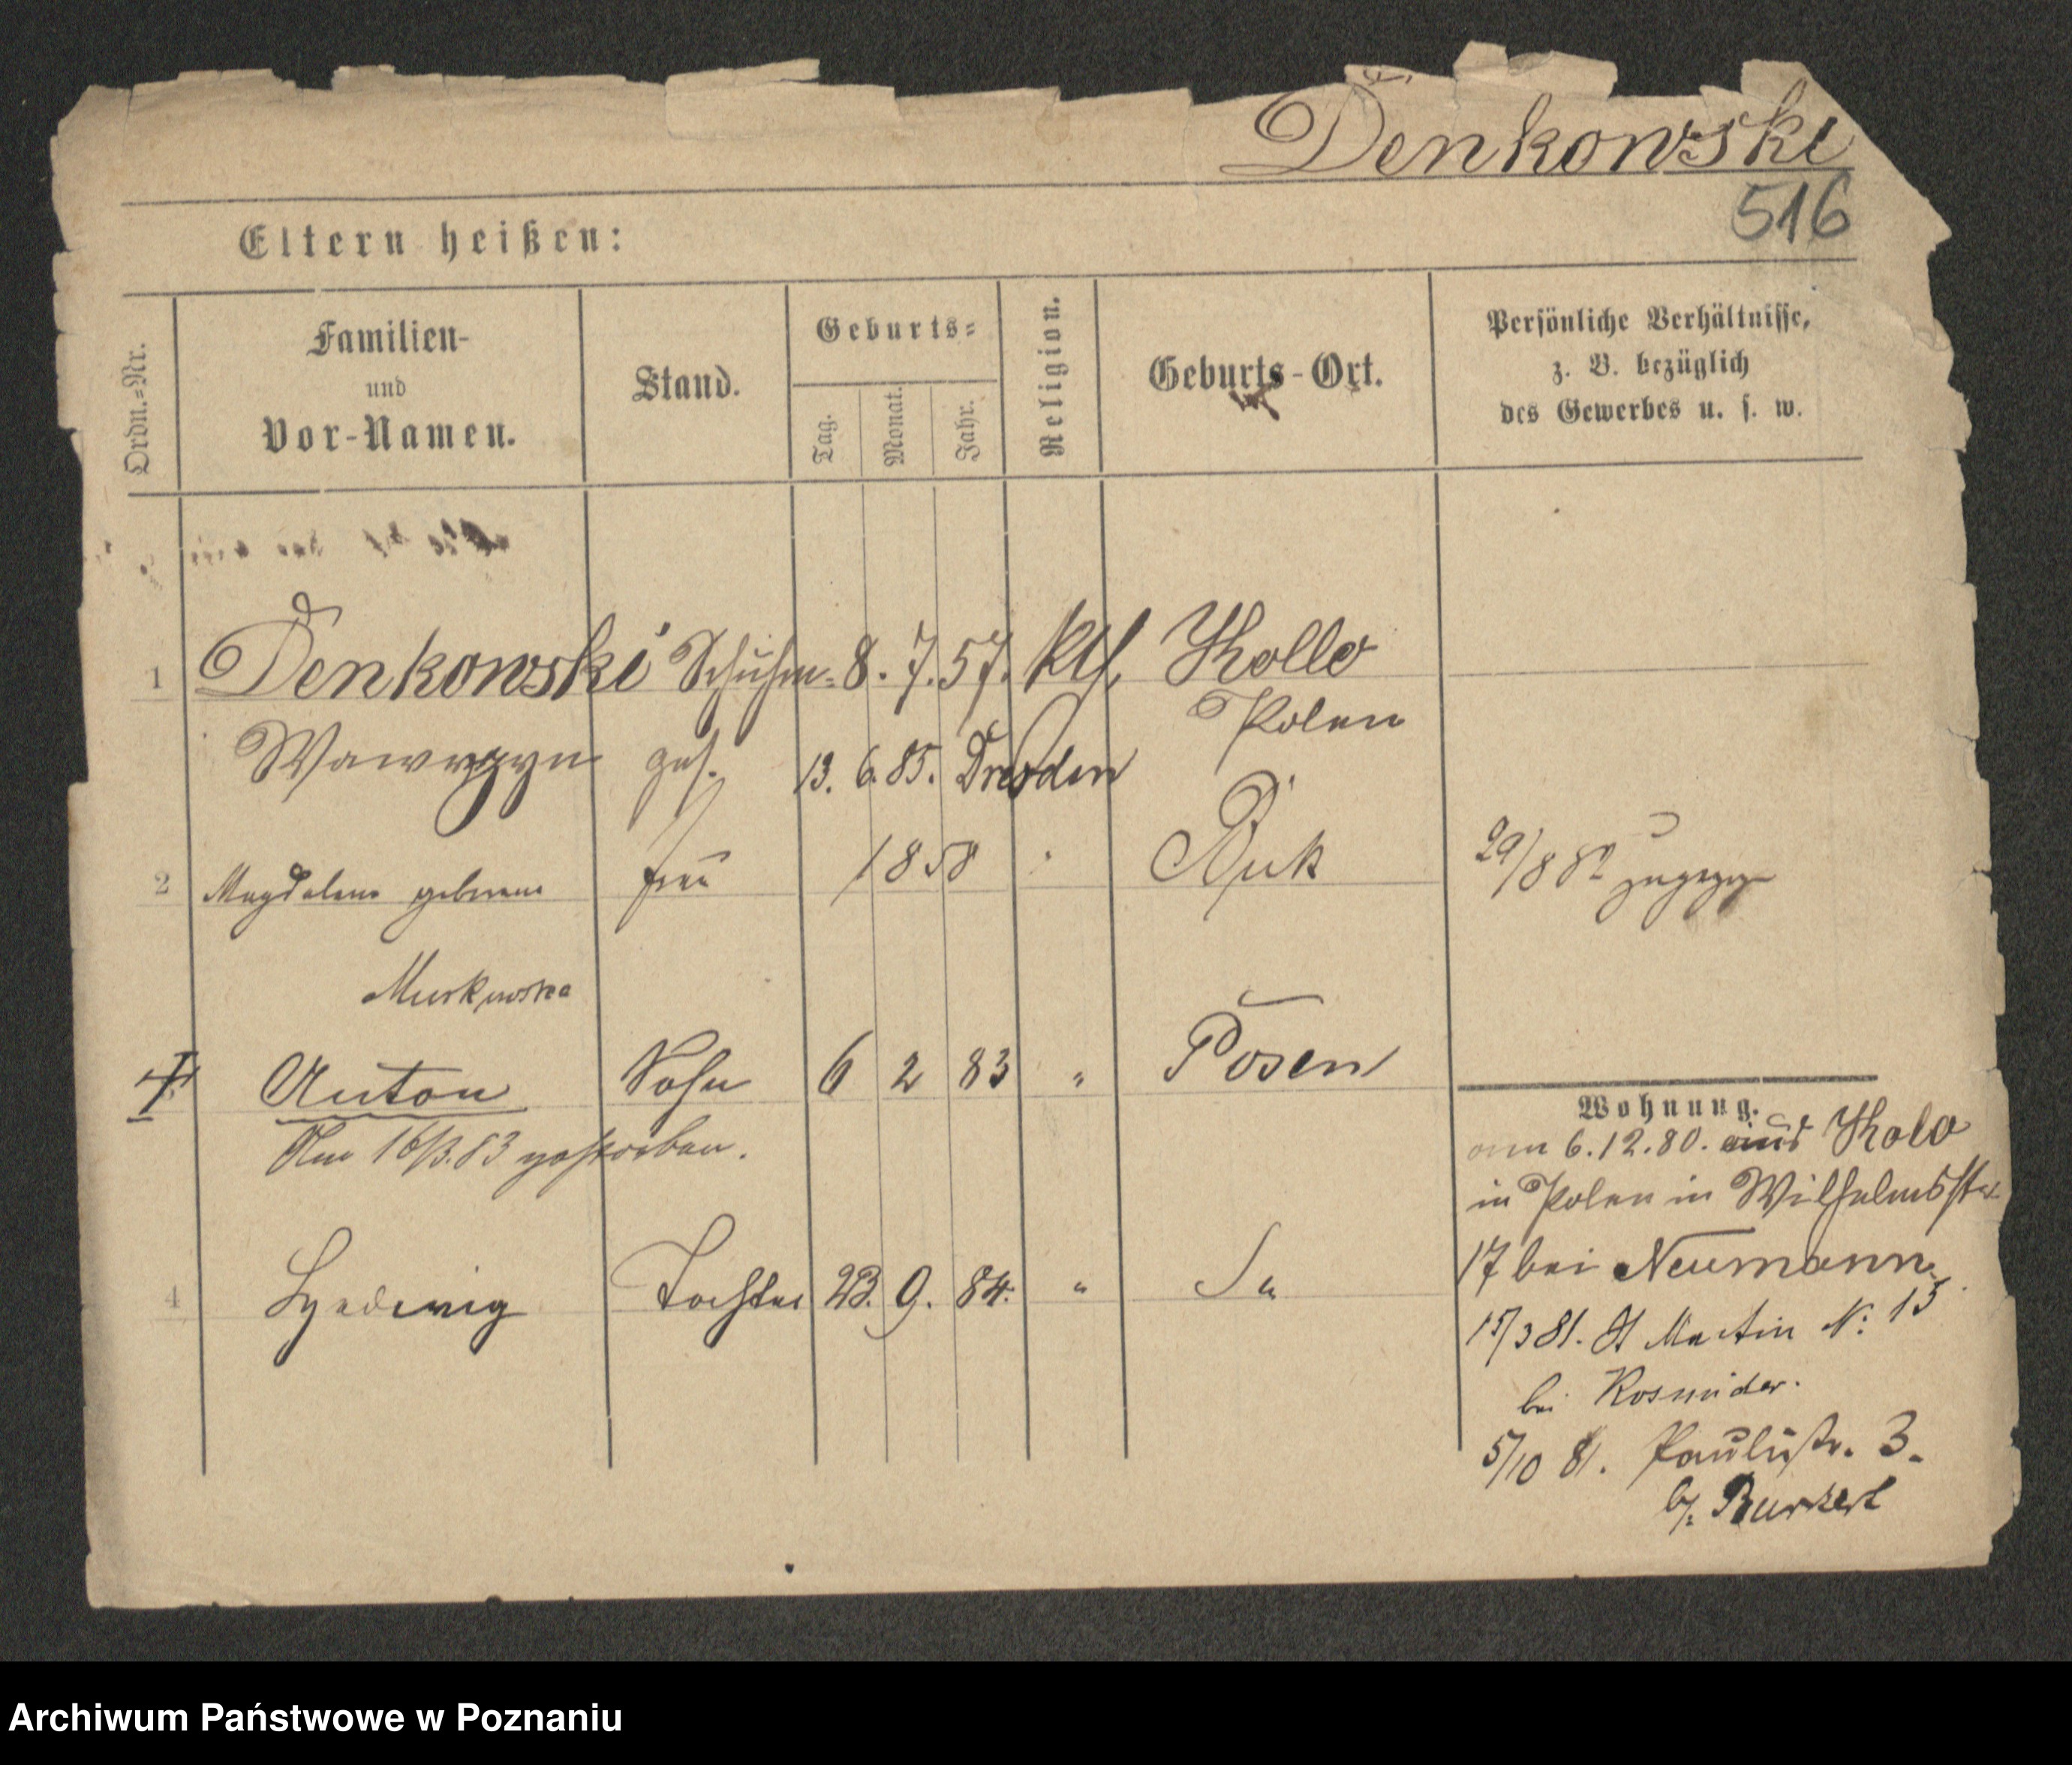 Denkowski
516
Eltern heißen:
Ordn.-Nr.
Familien-
und
Vor-Namen.
Stand.
Geburts-
Tag.
Monat.
Jahr.
Religion.
Geburts-Ort.
Persönliche Verhältnisse,
z. B. bezüglich
des Gewerbes u. s. w.
1 Denkowski Schuhm- 8. 7. 57. Kth. Kollo
Polen
Wawrzyn ges. 13. 6. 85. Dresden
2 Magdalena geborene frau 1858 Buk 29/8 82 zugezogen
Murkowska
Anton Sohn 6 2 83 " Posen
Am 16/3.83 gestorben.
4 Hedwig Tochter 23. 9. 84. "
Wohnung.
am 6.12.80. aus Kolo
in Polen in Wilhelmsstr.
17 bei Neumann
15/3 81. St Martin N: 15
bei Rosmider.
5/10 81. Paulistr. 3.
b/. Burkert
Archiwum Państwowe w Poznaniu